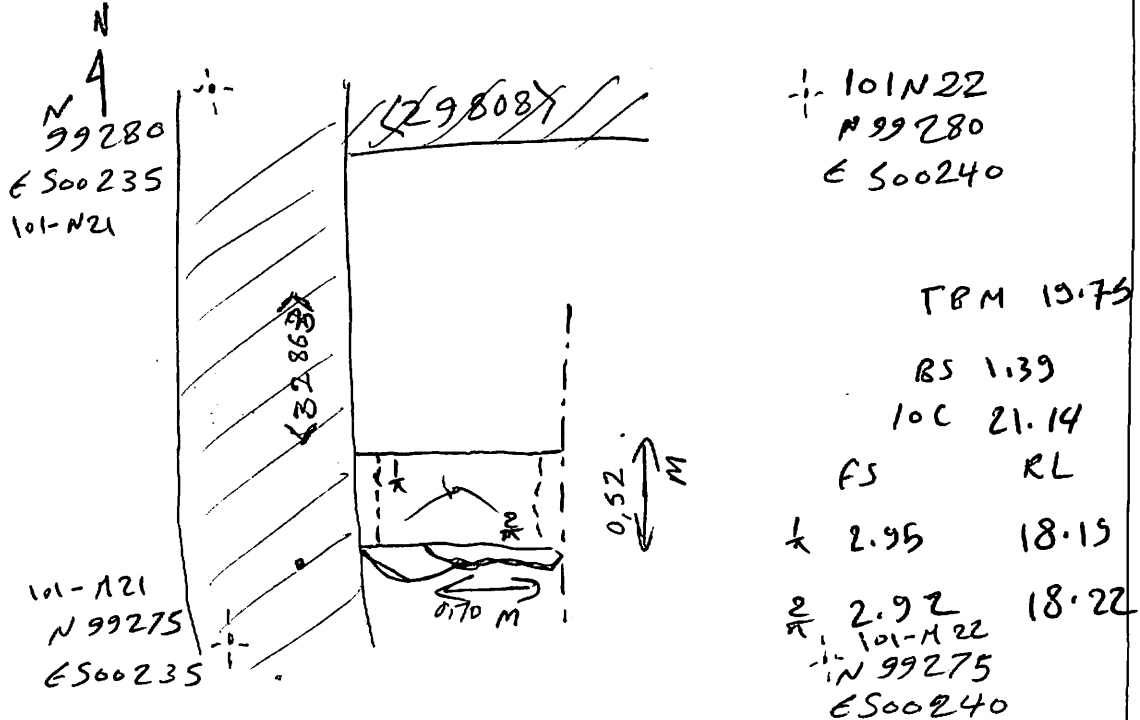 N
N
99280
E 500235
101-N21
<29808>
101N22
N 99280
E 500240
<32863>
TBM 19.75
BS 1.39
IOC 21.14
FS RL
1 2.95 18.19
2 2.92 18.22
1
2
0,52 M
0,70 M
101-M21
N 99275
E500235
101-M22
N 99275
E500240